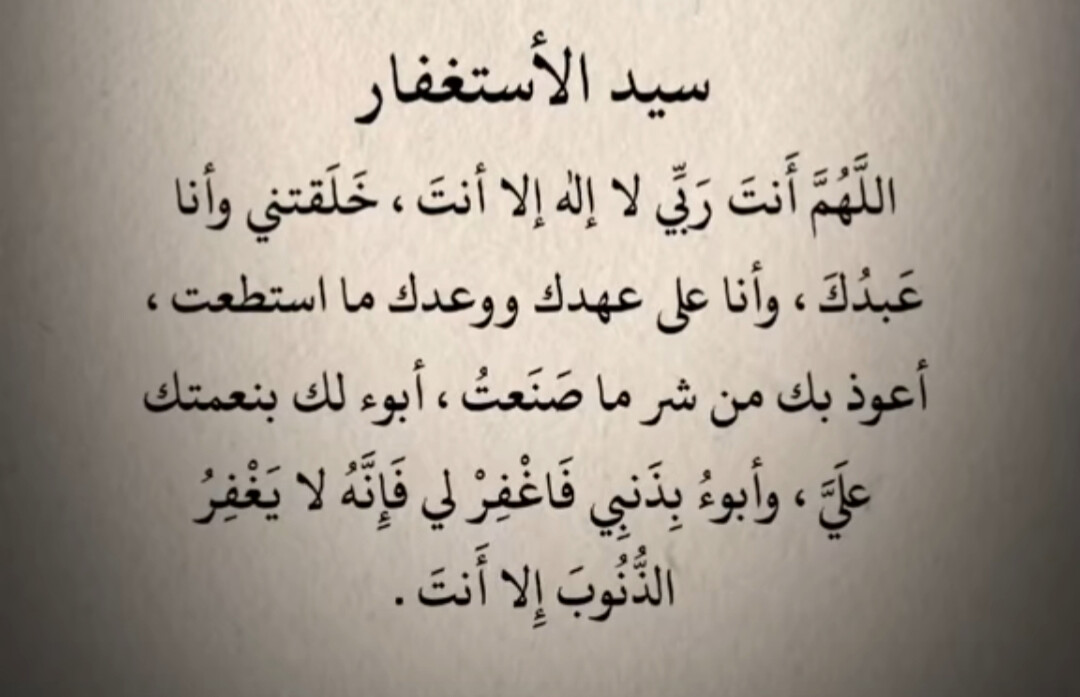 سيد الأستغفار
اللَّهُمَّ أَنتَ رَبِّي لا إله إلا أنتَ ، خَلَقتني وأنا
عَبدُكَ ، وأنا على عهدك ووعدك ما استطعت ،
أعوذ بك من شر ما صَنَعتُ ، أبوء لك بنعمتك
علَيَّ ، وأبوءُ بِذَنبِي فَاغْفِرْ لي فَإِنَّهُ لا يَغْفِرُ
الذُّنُوبَ إِلا أَنتَ .